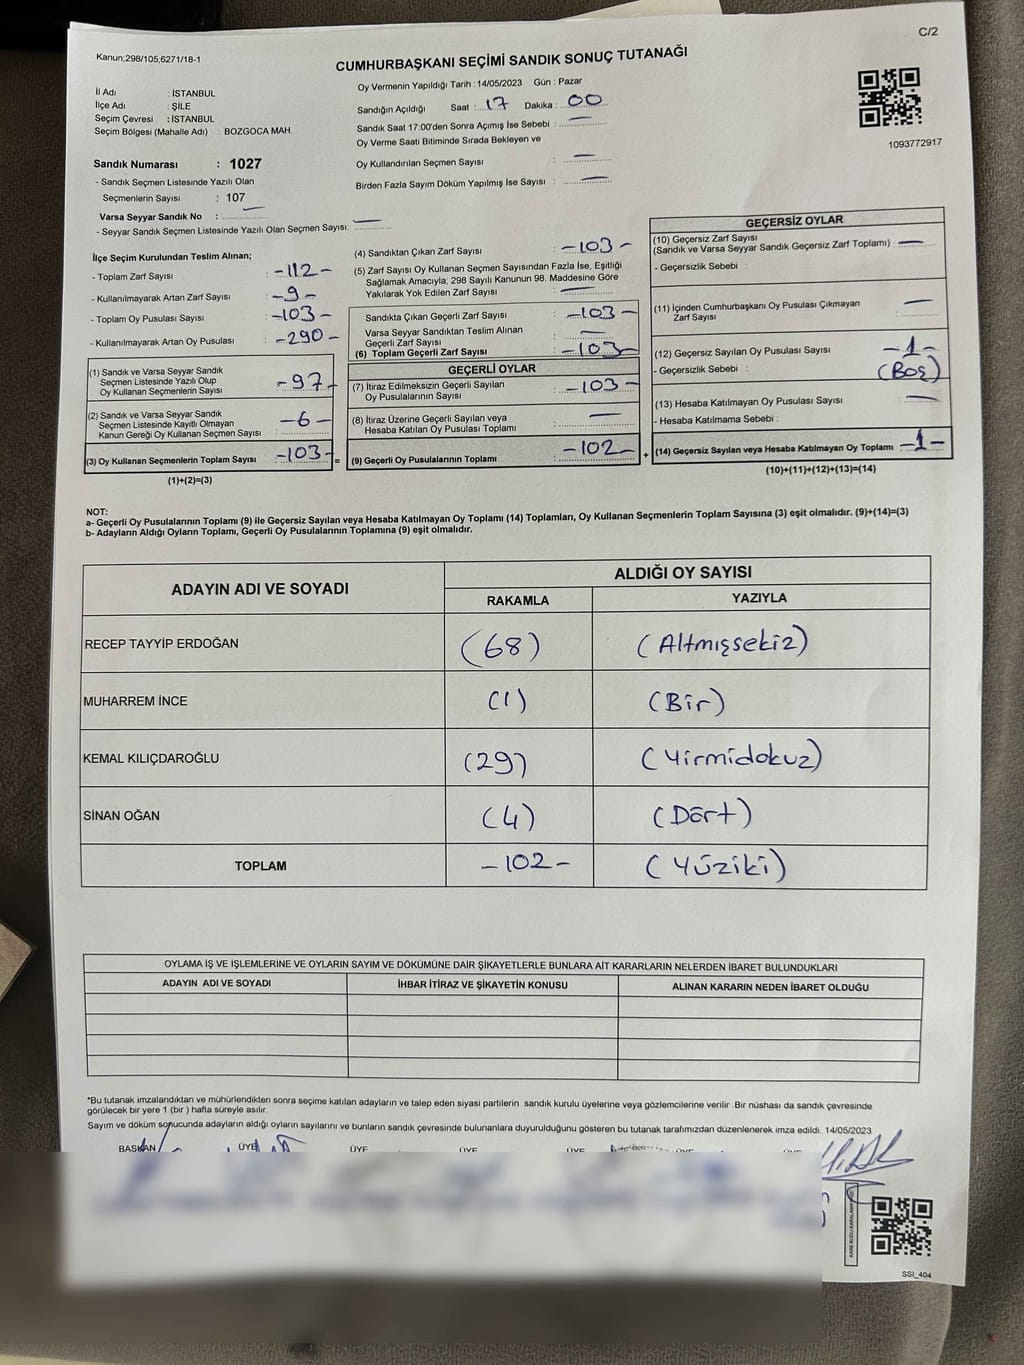 C/2
Kanun;298/105,6271/18-1
CUMHURBAŞKANI SEÇİMİ SANDIK SONUÇ TUTANAĞI
İl Adı : İSTANBUL
İlçe Adı : ŞİLE
Seçim Çevresi : İSTANBUL
Seçim Bölgesi (Mahalle Adı) : BOZGOCA MAH.
Sandık Numarası : 1027
- Sandık Seçmen Listesinde Yazılı Olan
Seçmenlerin Sayısı : 107
Varsa Seyyar Sandık No : —
- Seyyar Sandık Seçmen Listesinde Yazılı Olan Seçmen Sayısı: —
Oy Vermenin Yapıldığı Tarih : 14/05/2023 Gün : Pazar
Sandığın Açıldığı Saat : 17 Dakika : 00
Sandık Saat 17:00'den Sonra Açımış İse Sebebi : —
Oy Verme Saati Bitiminde Sırada Bekleyen ve
Oy Kullandırılan Seçmen Sayısı : —
Birden Fazla Sayım Döküm Yapılmış İse Sayısı : —
1093772917
İlçe Seçim Kurulundan Teslim Alınan;
- Toplam Zarf Sayısı : -112-
- Kullanılmayarak Artan Zarf Sayısı : -9-
- Toplam Oy Pusulası Sayısı : -103-
- Kullanılmayarak Artan Oy Pusulası : -290-
(1) Sandık ve Varsa Seyyar Sandık
Seçmen Listesinde Yazılı Olup
Oy Kullanan Seçmenlerin Sayısı -97-
(2) Sandık ve Varsa Seyyar Sandık
Seçmen Listesinde Kayıtlı Olmayan
Kanun Gereği Oy Kullanan Seçmen Sayısı -6-
(3) Oy Kullanan Seçmenlerin Toplam Sayısı -103- =
(1)+(2)=(3)
(4) Sandıktan Çıkan Zarf Sayısı : -103-
(5) Zarf Sayısı Oy Kullanan Seçmen Sayısından Fazla İse, Eşitliği
Sağlamak Amacıyla; 298 Sayılı Kanunun 98. Maddesine Göre
Yakılarak Yok Edilen Zarf Sayısı : —
Sandıkta Çıkan Geçerli Zarf Sayısı : -103-
Varsa Seyyar Sandıktan Teslim Alınan
Geçerli Zarf Sayısı : —
(6) Toplam Geçerli Zarf Sayısı : -103-
GEÇERLİ OYLAR
(7) İtiraz Edilmeksizin Geçerli Sayılan
Oy Pusulalarının Sayısı : -103-
(8) İtiraz Üzerine Geçerli Sayılan veya
Hesaba Katılan Oy Pusulası Toplamı : —
(9) Geçerli Oy Pusulalarının Toplamı : -102- +
GEÇERSİZ OYLAR
(10) Geçersiz Zarf Sayısı
(Sandık ve Varsa Seyyar Sandık Geçersiz Zarf Toplamı) : —
- Geçersizlik Sebebi :
(11) İçinden Cumhurbaşkanı Oy Pusulası Çıkmayan
Zarf Sayısı : —
(12) Geçersiz Sayılan Oy Pusulası Sayısı : -1-
- Geçersizlik Sebebi : (Boş)
(13) Hesaba Katılmayan Oy Pusulası Sayısı : —
- Hesaba Katılmama Sebebi :
(14) Geçersiz Sayılan veya Hesaba Katılmayan Oy Toplamı : -1-
(10)+(11)+(12)+(13)=(14)
NOT:
a- Geçerli Oy Pusulalarının Toplamı (9) ile Geçersiz Sayılan veya Hesaba Katılmayan Oy Toplamı (14) Toplamları, Oy Kullanan Seçmenlerin Toplam Sayısına (3) eşit olmalıdır. (9)+(14)=(3)
b- Adayların Aldığı Oyların Toplamı, Geçerli Oy Pusulalarının Toplamına (9) eşit olmalıdır.
ADAYIN ADI VE SOYADI ALDIĞI OY SAYISI
RAKAMLA YAZIYLA
RECEP TAYYİP ERDOĞAN (68) (Altmışsekiz)
MUHARREM İNCE (1) (Bir)
KEMAL KILIÇDAROĞLU (29) (Yirmidokuz)
SİNAN OĞAN (4) (Dört)
TOPLAM -102- (Yüziki)
OYLAMA İŞ VE İŞLEMLERİNE VE OYLARIN SAYIM VE DÖKÜMÜNE DAİR ŞİKAYETLERLE BUNLARA AİT KARARLARIN NELERDEN İBARET BULUNDUKLARI
ADAYIN ADI VE SOYADI İHBAR İTİRAZ VE ŞİKAYETİN KONUSU ALINAN KARARIN NEDEN İBARET OLDUĞU
*Bu tutanak imzalandıktan ve mühürlendikten sonra seçime katılan adayların ve talep eden siyasi partilerin sandık kurulu üyelerine veya gözlemcilerine verilir .Bir nüshası da sandık çevresinde
görülecek bir yere 1 (bir ) hafta süreyle asılır.
Sayım ve döküm sonucunda adayların aldığı oyların sayılarını ve bunların sandık çevresinde bulunanlara duyurulduğunu gösteren bu tutanak tarafımızdan düzenlenerek imza edildi. 14/05/2023
BAŞKAN ÜYE ÜYE ÜYE ÜYE
SSI_404